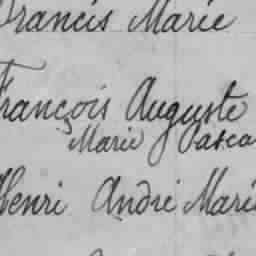 Francis Marie
François Auguste
Marie Pasca
Henri André Marie